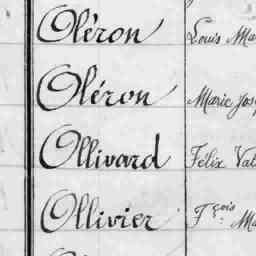 Oléron Louis Ma
Oléron Marie Jos
Ollivard Félix Val
Ollivier Fçois Ma